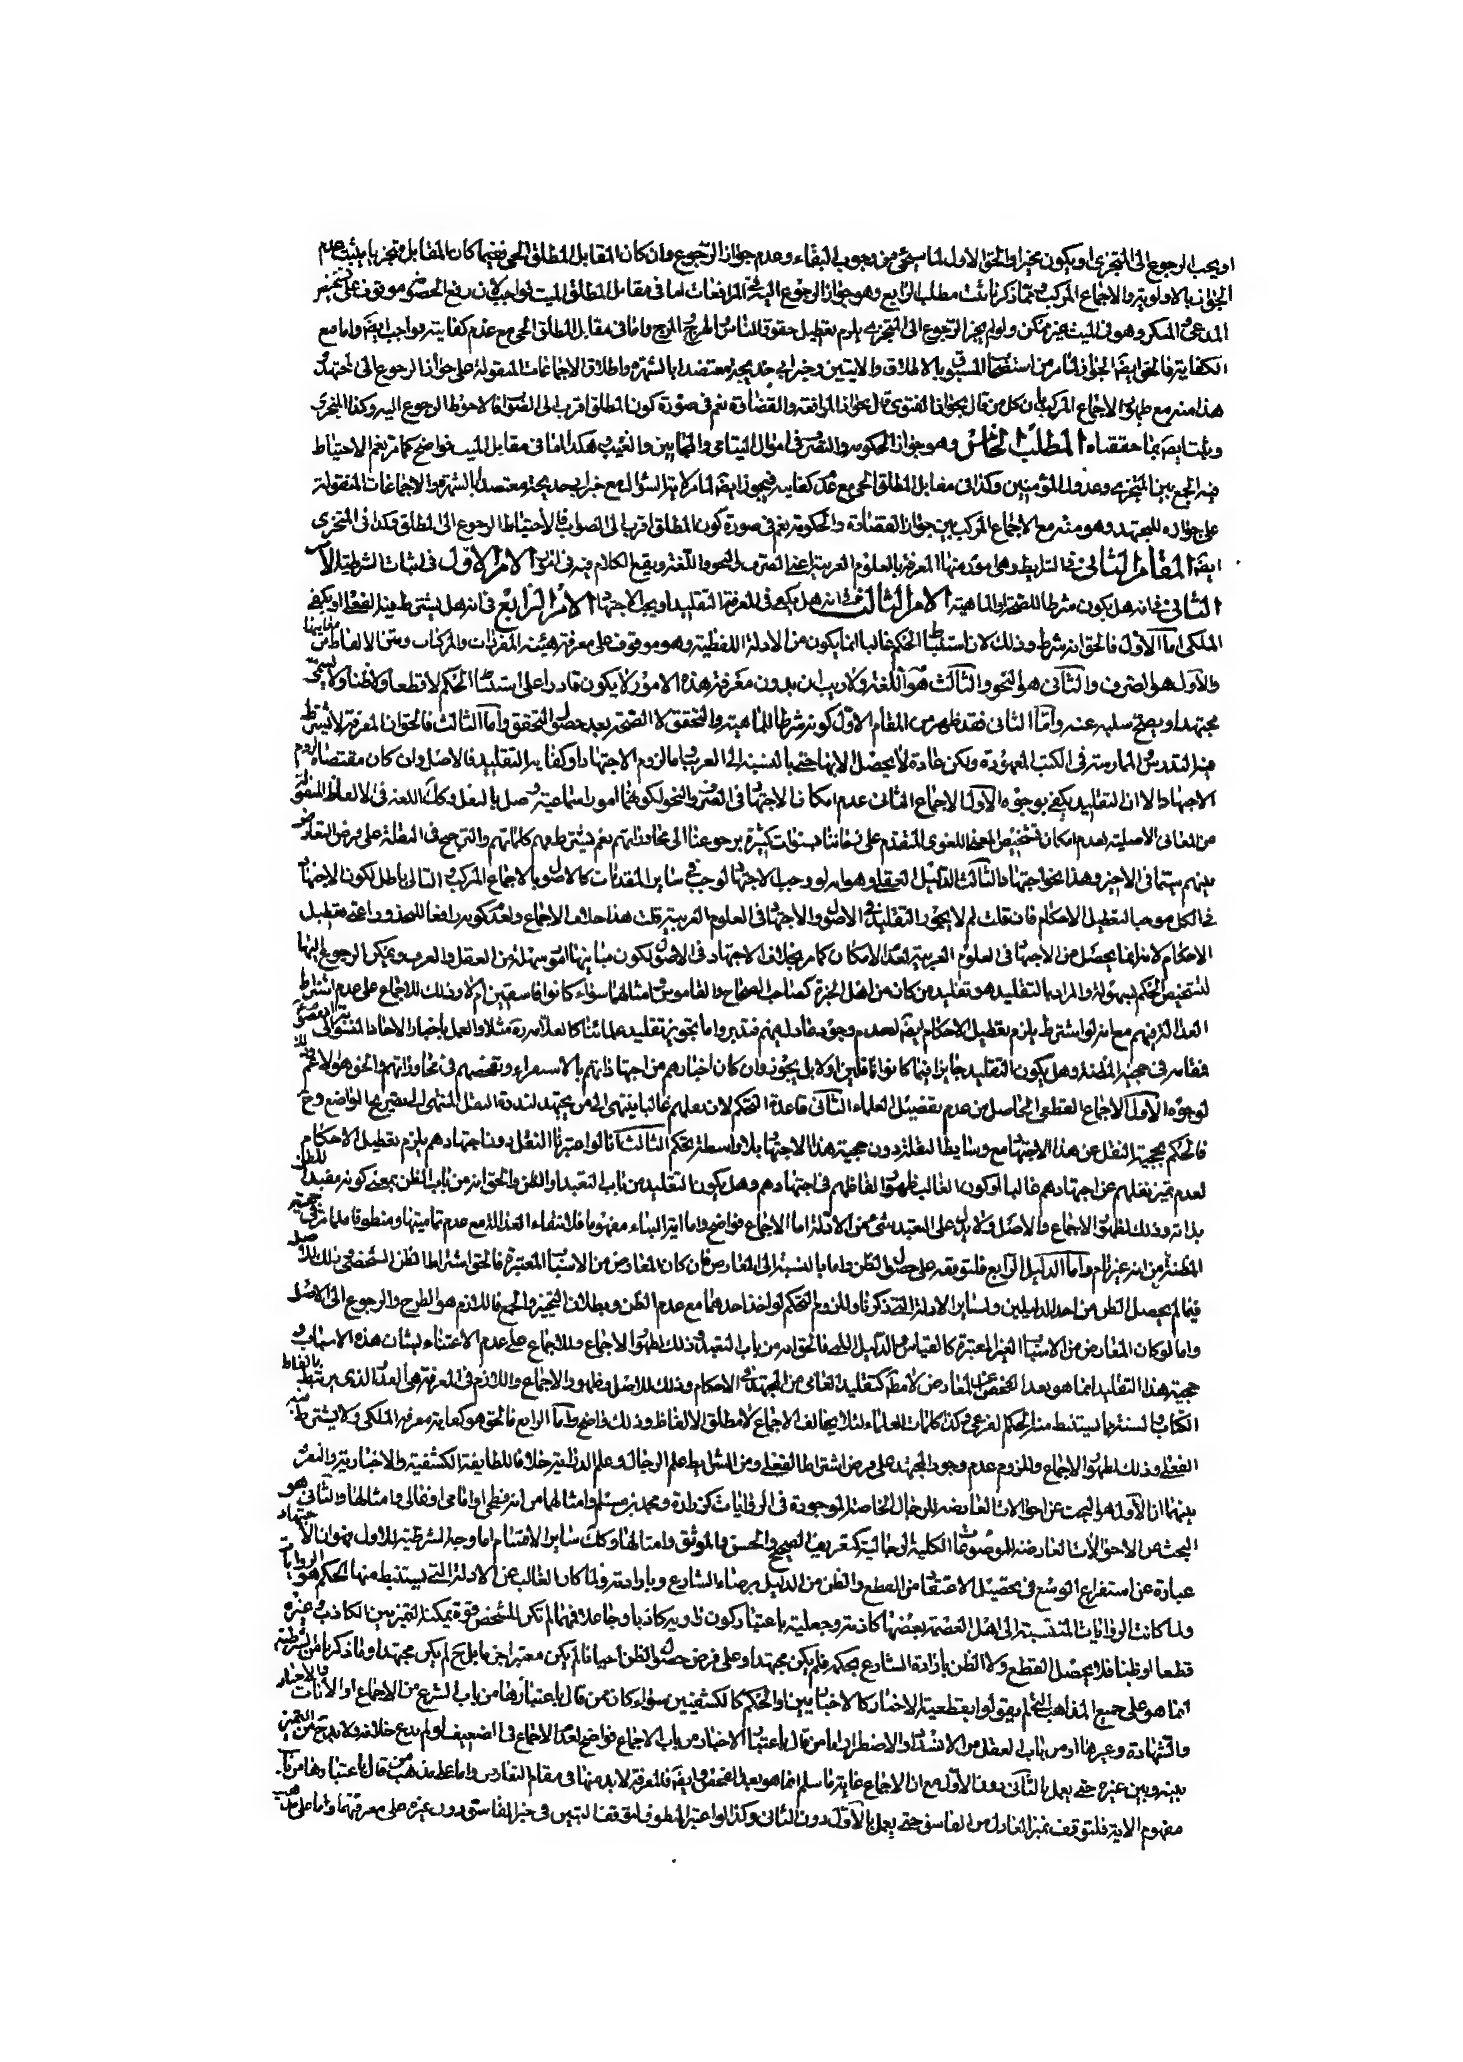 او يجب الرجوع الى المتجزى او يكون مخيرا والحق الاول لما سيجئ من وجوب البقاء وعدم جواز الرجوع وان كان المقابل المطلق الحى ففيما كان المقابل متجزيا يثبت عدم
الجواز بالاولوية والاجماع المركب ومما ذكرنا ثبت مطلب الرابع وهو جواز الرجوع اليه فى المرافعات اما فى مقابل المطلق الميت فواجب لان رفع الخصومة موقوف على تمييز
المدعى والمنكر وهو فى الميت غير ممكن ولو لم يجز الرجوع الى المتجزى يلزم تعطيل حقوق الناس والهرج والمرج واما فى مقابل المطلق الحى مع عدم كفايته فواجب ايضا واما مع
الكفاية فالحق ايضا الجواز لما مر من استصحاب المسبوق بالاطلاق والايتين وخبر ابى خديجة معتضدا بالشهرة واطلاق الاجماعات المنقولة على جواز الرجوع الى المجتهد
هذا منه مع ظهور الاجماع المركب بان كل من قال بجواز الفتوى قال بجواز المرافعة والقضاوة نعم فى صورة كون المطلق اقرب الى الصواب فالاحوط الرجوع اليه وكذا المتجزى
وثبت ايضا بما حققناه المطلب الخامس وهو جواز الحكومة والتصرف فى اموال اليتامى والمجانين والغيب هكذا اما فى مقابل الميت فواضح كما مر نعم الاحتياط
فيه الجمع بين المتجزى وعدول المؤمنين وكذا فى مقابل المطلق الحى مع عدم كفايته فيجوز ايضا لما مر لاية السؤال مع خبر ابى خديجة معتضدا بالشهرة والاجماعات المنقولة
على جوازه للمجتهد وهو منه مع الاجماع المركب بين جواز القضاوة والحكومة نعم فى صورة كون المطلق اقرب الى الصواب فالاحتياط الرجوع الى المطلق وكذا فى المتجزى
ايضا المقام الثانى فى الشرايط وهى امور منها المعرفة بالعلوم العربية اعنى الصرف والنحو واللغة ويقع الكلام فيه فى امور الامر الاول فى اثبات الشرطية الامر
الثانى فى انه هل يكون شرطا للصحة او الماهية الامر الثالث فى انه هل يكفى فى المعرفة التقليد او يجب الاجتهاد الامر الرابع فى انه هل يشترط فيه الفعل او يكفى
الملكى اما الاول فالحق انه شرط وذلك لان استنباط الحكم غالبا انما يكون من الادلة اللفظية وهو موقوف على معرفة هيئة المفردات والمركبات ومتن الالفاظ من معانيها
والاول هو الصرف والثانى هو النحو والثالث هو اللغة ولا ريب ان بدون معرفة هذه الامور لا يكون قادرا على استنباط الحكم لا قطعا ولا ظنا ولا يسمى
مجتهدا ويصح سلبه عنه واما الثانى فقد ظهر من المقام الاول كونه شرطا للماهية والتحقق لا الصحة بعد حصول التحقق واما الثالث فالحق ان المعرفة لا يشترط
فيه التدرس والممارسة فى الكتب المعهودة ولكن عادة لا يحصل الا بها حتى بالنسبة الى العرب واما لزوم الاجتهاد او كفاية التقليد فالاصل وان كان مقتضاه لزوم
الاجتهاد الا ان التقليد يكفى بوجوه الاول الاجماع الثانى عدم امكان الاجتهاد فى الصرف والنحو لكونهما امورا سماعية وصل بالنقل وكذلك اللغة فى الالفاظ المنقولة
من المعانى الاصلية لعدم امكان تشخيص المعنى اللغوى المتقدم على زماننا بسنوات كثيرة برجوعنا الى محاوراتهم نعم يشترط فهم كلماتهم والترجيح فى النقلة على فرض التعارض
بينهم سيما فى الاخير وهذا نحو اجتهاد الثالث الدليل العقلى وهو انه لو وجب الاجتهاد لوجب فى ساير المقدمات كالاصول بالاجماع المركب والتالى باطل لكون الاجتهاد
فى الكل موجبا لتعطيل الاحكام فان قلت لم لا يجوز التقليد فى الاصول والاجتهاد فى العلوم العربية قلت هذا خلاف الاجماع ولعدم كونه رافعا للمحذور اعنى تعطيل
الاحكام لانه انما يحصل من الاجتهاد فى العلوم العربية لعدم الامكان كما مر بخلاف الاجتهاد فى الاصول لكون مبانيها امور سهلة من العقل والعرف ويمكن الرجوع اليها
لتشخيص الحكم بسهولة والمراد بالتقليد هو تقليد من كان من اهل الخبرة كصاحب الصحاح والقاموس وامثالهما سواء كانوا فاسقين ام لا وذلك للاجماع على عدم اشتراط
العدالة فيهم مع انه لو اشترط يلزم تعطيل الاحكام ايضا لعدم وجود عادل بينهم فتدبر واما تجويز تقليد علمائنا كالعلامة مثلا والعمل باخبار الاحاد المنسوبة الى المعصوم
فمقامه فى حجية المظنة وهل يكون التقليد جايز فيما كانوا ناقلين اولا بل يجوز وان كان اخبارهم من اجتهاداتهم بالاستقراء وتفحصهم فى محاوراتهم والحق هو الاعم
لوجوه الاول الاجماع القطعى الحاصل من عدم تفصيل العلماء الثانى قاعدة التحكم لان نقلهم غالبا ينتهى الى من يجتهد لندرة النقل المنتهى الى تصريح الواضع وح
فالحكم بحجية النقل عن هذا الاجتهاد مع وسايط النقلة دون حجية هذا الاجتهاد بلا واسطة تحكم الثالث انا لو اعتبرنا النقل دون اجتهادهم يلزم تعطيل الاحكام
لعدم تميز نقلهم عن اجتهادهم غالبا وهل يكون التقليد من باب التعبد او الظن والحق انه من باب الظن بمعنى كونه مفيدا للظن
بذاته وذلك لظهور الاجماع والاصل ولا يدل على التعبد شئ من الادلة اما الاجماع فواضح واما اية النباء مفهوما فلانتفاء العدالة مع عدم تماميتها ومنطوقا فلما مر فى حجية
المظنة من انه غير تام واما الدليل الرابع فلتوقفه على حصول الظن واما بالنسبة الى المعارض فان كان المعارض من الاسباب المعتبرة فالحق اشتراط الظن الشخصى
فيما لم يحصل الظن من احد الدليلين ولساير الادلة التى ذكرنا وللزوم التحكم لو اخذ احدهما مع عدم الظن وبطلان التخيير والجمع فاللازم هو الطرح والرجوع الى الاصل
واما لو كان المعارض من الاسباب الغير المعتبرة كالقياس والدليل اللمى فالحق انه من باب التعبد وذلك لظهور الاجماع وللاجماع على عدم الاعتناء لشان هذه الاسباب و
حجية هذا التقليد انما هو بعد الفحص عن المعارض لا مطلقا كتقليد العامى من المجتهد فى الاحكام وذلك للاصل وظهور الاجماع واللازم فى المعرفة هى القدر الذى يرتبط بالفاظ
الكتاب والسنة مما يستنبط منه الحكم الفرعى وكذا كلمات العلماء لئلا يخالف الاجماع لا مطلق الالفاظ وذلك واضح واما الرابع فالحق هو كفاية معرفة الملكى ولا يشترط فيه
الفعلى وذلك لظهور الاجماع وللزوم عدم وجود المجتهد على فرض اشتراط الفعلى ومن الشرايط علم الرجال وعلم الدراية خلافا للطايفة الكشفية والاخبارية والفرق
بينهما ان الاول هو البحث عن احوالات العارضة للرجال الخاصة الموجودة فى الروايات كزرارة ومحمد بن مسلم وامثالهما من انه فطحى او امامى او غالى وامثالها والثانى هو
البحث عن الاحوالات العارضة للموضوعات الكلية الرجالية كتعريف الصحيح والحسن والموثق وامثالها وكذلك ساير الاقسام اما وجه الشرطية للاول فهو ان الاجتهاد
عبارة عن استفراغ الوسع فى تحصيل الاعتقاد من القطع والظن من الدليل برضاء الشارع وبارادته ولما كان الغالب عن الادلة التى يستنبط منها الحكم هو الروايات
ولما كانت الروايات المنتسبة الى اهل العصمة بعضها كاذبة وجعلية باعتبار كون راويه كاذبا وجاعلا فمهما لم تكن للشخص قوة يمكنه التميز بين الكاذب وغيره
قطعا او ظنا فلا يحصل القطع ولا الظن بارادة الشارع بحكمه فلم يكن مجتهدا وعلى فرض حصول الظن احيانا لم يكن معتبرا جزما بل ح لم يكن مجتهدا وما ذكرنا من الشرطية
انما هو على جميع المذاهب التى لم يقولوا بقطعية الاخبار كالاخباريين او الحكم كالكشفيين سواء كان ممن قال باعتبارها من باب الشرع من الاجماع او الايات والاخبار
والشهادة وغيرها او من باب العقل من الانسداد والاضطرار اما من قال باعتبار الاخبار من باب الاجماع فواضح لعدم الاجماع فى الضعيف لو لم ندع خلافه ولا بد ح من التميز
بينه وبين غيره حتى يعمل بالثانى دون الاول مع ان الاجماع غاية ما سلم انما هو بعد الفحص وايضا فالمعرفة لابد منها فى مقام التعارض واما على مذهب من قال باعتبارها من باب
مفهوم الاية فلتوقف تميز العادل من الفاسق حتى يعمل بالاول دون الثانى وكذا لو اعتبر المنطوق لتوقف التبين فى خبر الفاسق دون غيره على معرفتهما واما على مذهب